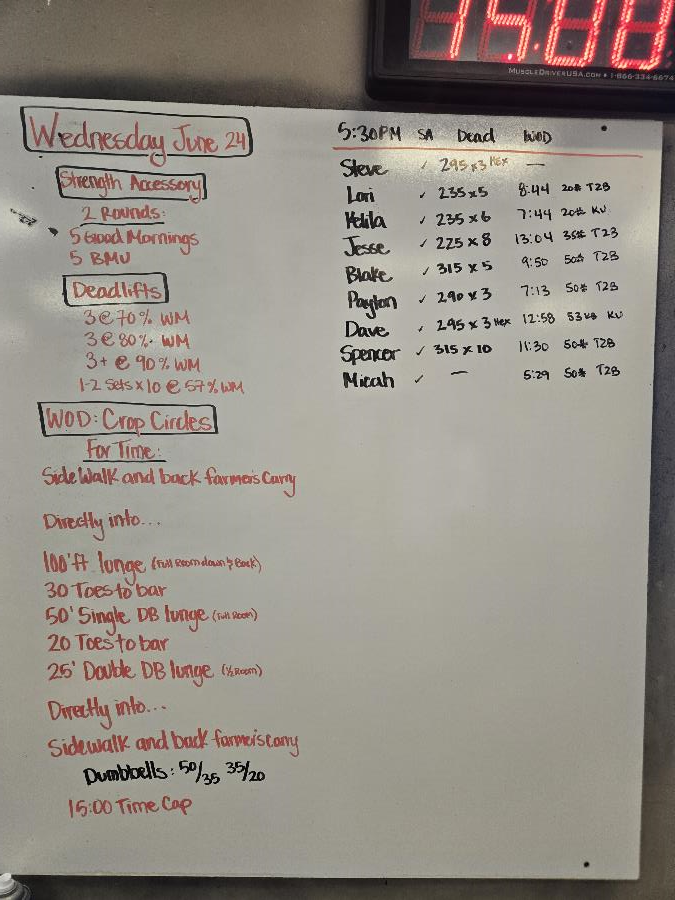 15:00
MUSCLEDRIVERUSA.COM • 1-866-334-6674
Wednesday June 24
Strength Accessory
2 Rounds:
5 Good Mornings
5 BMU
Deadlifts
3 @ 70% WM
3 @ 80% WM
3+ @ 90% WM
1-2 Sets x 10 @ 57% WM
WOD: Crop Circles
For Time:
Sidewalk and back farmers Carry
Directly into...
100'ft lunge (Full Room down & Back)
30 Toes to bar
50' Single DB lunge (Full Room)
20 Toes to bar
25' Double DB lunge (1/2 Room)
Directly into...
Sidewalk and back farmer's carry
Dumbbells: 50/35 35/20
15:00 Time Cap
5:30PM SA Dead WOD
Steve ✓ 295 x 3 Hex —
Lori ✓ 235 x 5 8:44 20# T2B
Kelila ✓ 235 x 6 7:44 20# KU
Jesse ✓ 225 x 8 13:04 35# T2B
Blake ✓ 315 x 5 9:50 50# T2B
Payton ✓ 290 x 3 7:13 50# T2B
Dave ✓ 295 x 3 Hex 12:58 53 KB KU
Spencer ✓ 315 x 10 11:30 50# T2B
Micah ✓ — 5:29 50# T2B